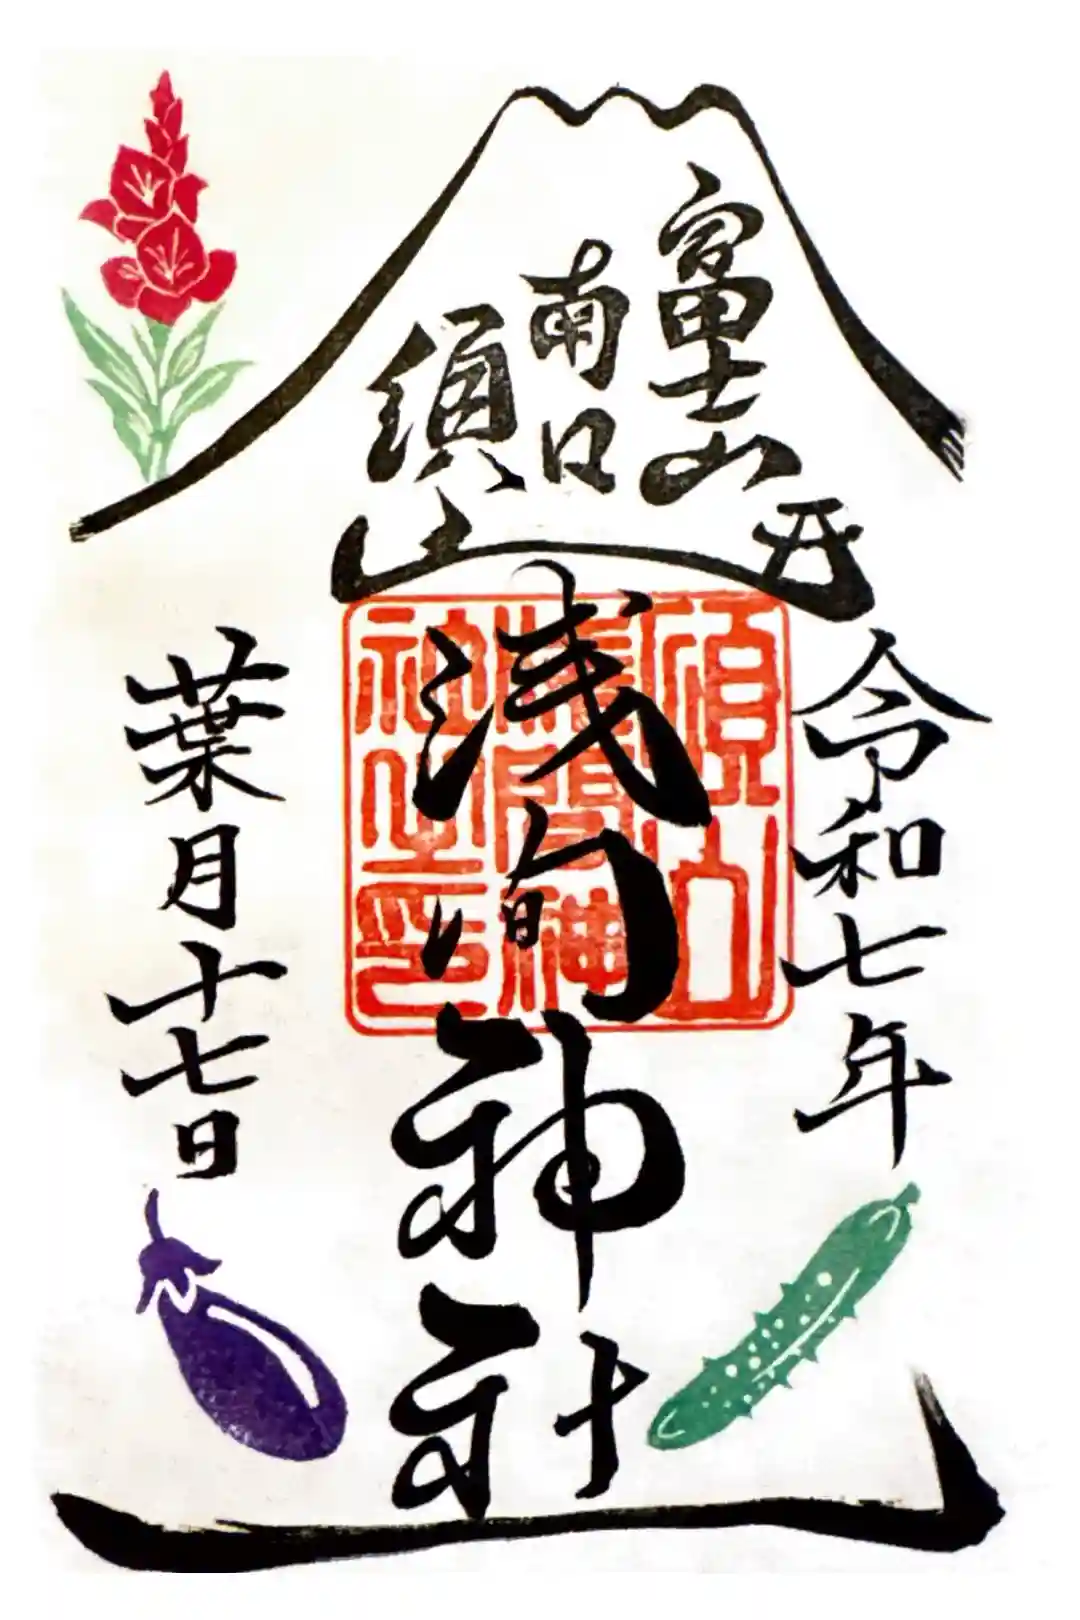 富士山
南口
須山
浅間神社
須山
浅間神
社之印
令和七年
葉月十七日